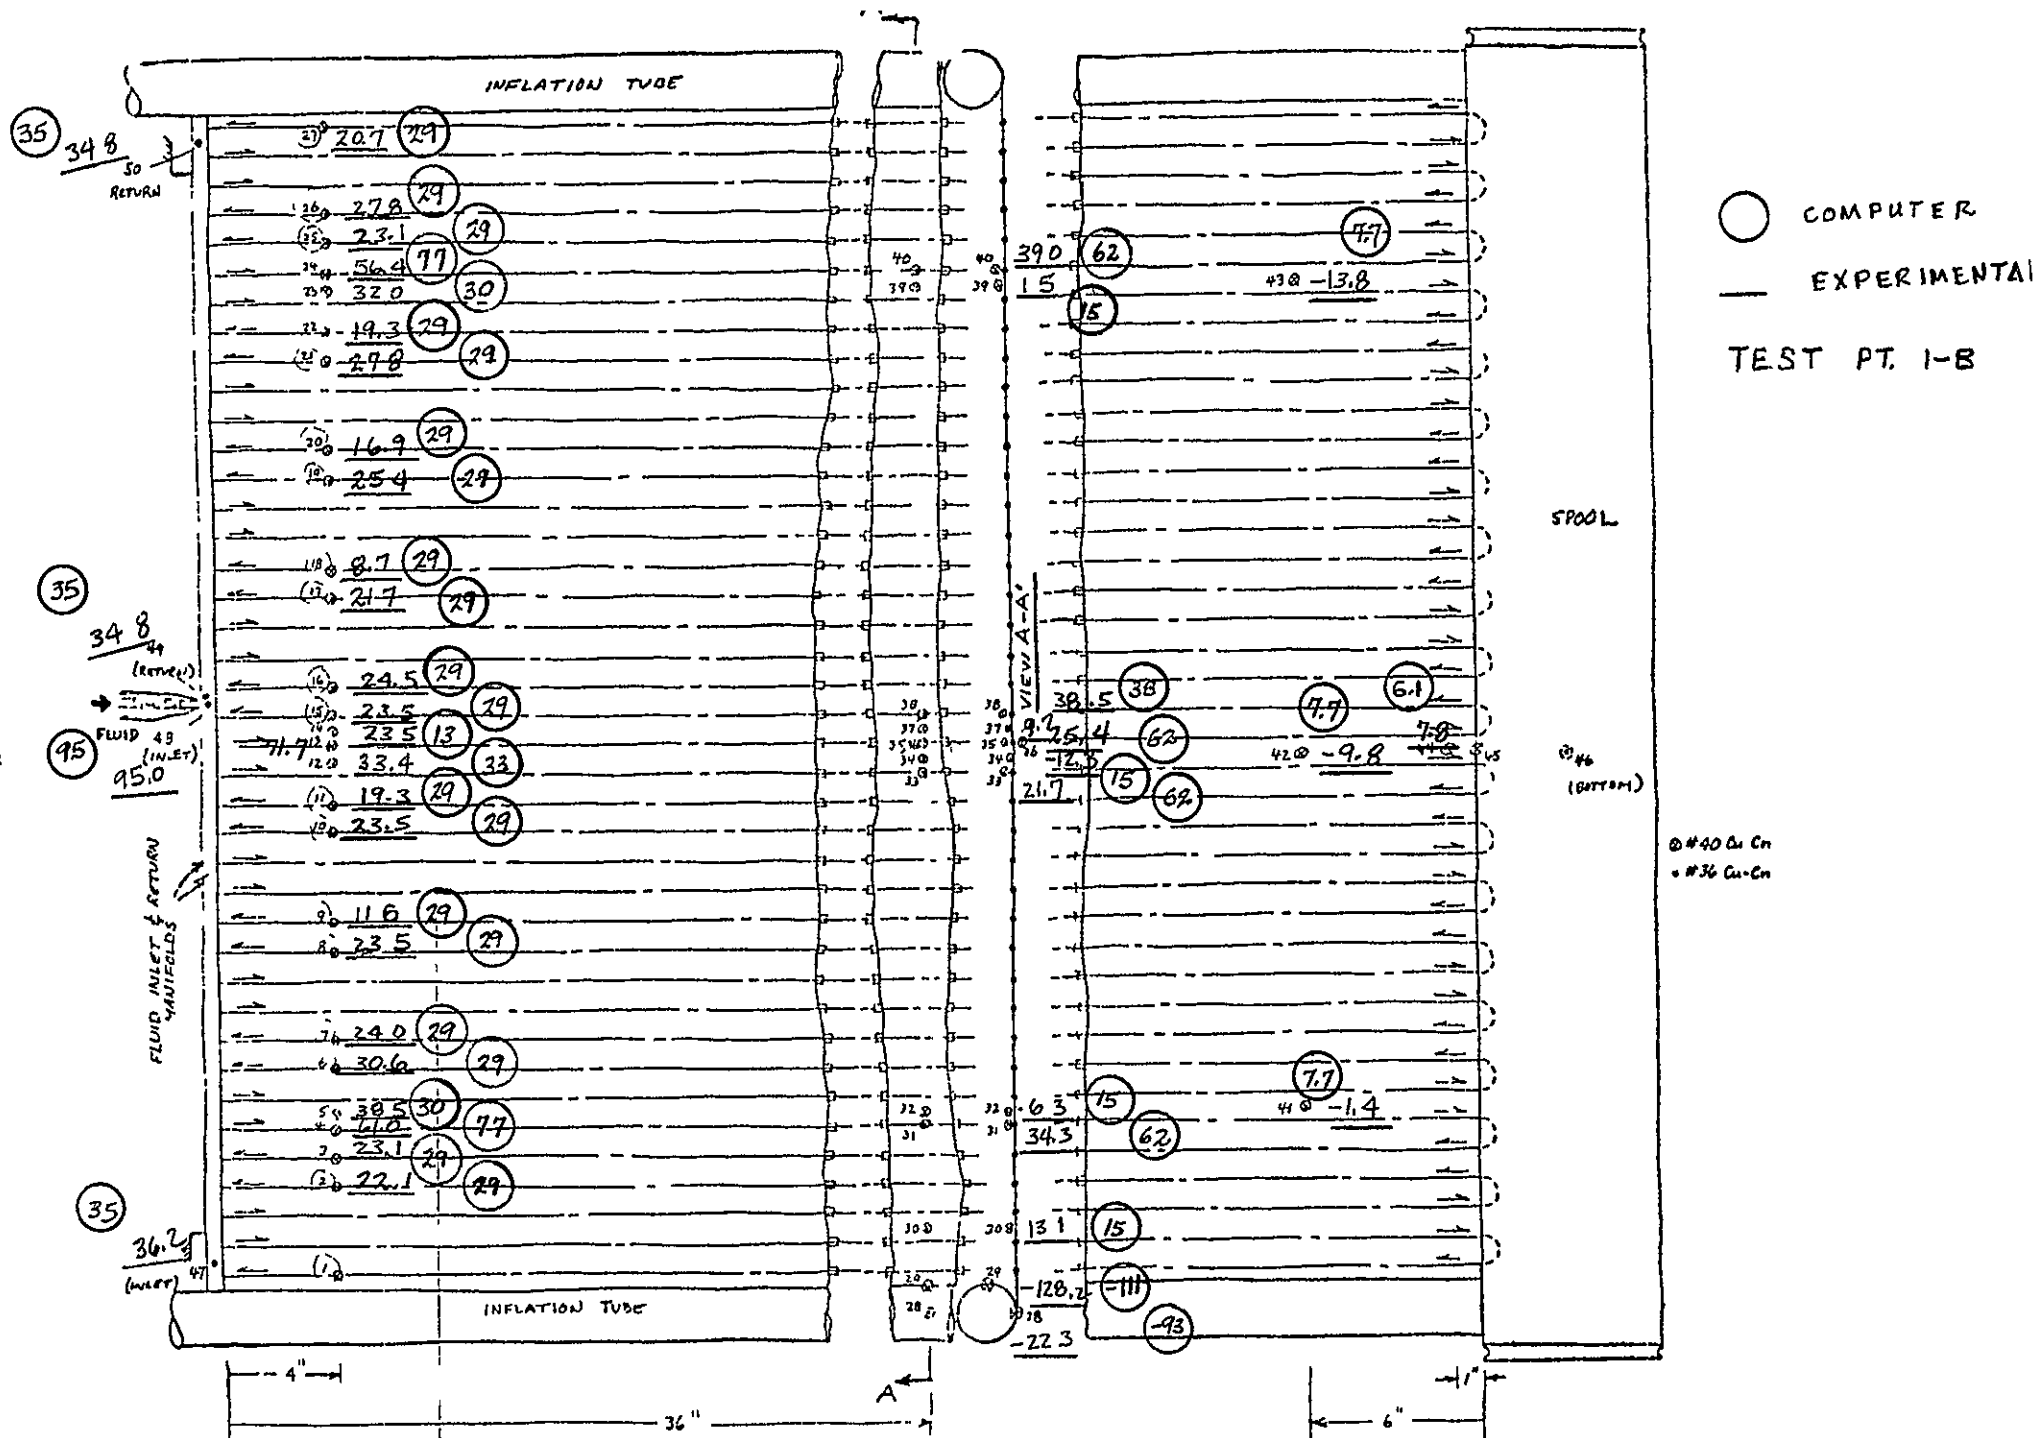 INFLATION TUBE
35
34 8
50
RETURN
27 20.7 29
26 27.8 29
25 23.1 29
24 56.4 77
23 32 0 30
22 19.3 29
21 27 8 29
20 16.9 29
19 25 4 29
18 8.7 29
17 21 7 29
35
34 8
49
(RETURN)
FLUID 48
(INLET)
95
95.0
16 24.5 29
15 23.5 29
14 23 5 13
71.7 12
12 33.4 33
11 19.3 29
10 23.5 29
FLUID INLET & RETURN
MANIFOLDS
9 11 6 29
8 23 5 29
7 24 0 29
6 30.6 29
5 38 5 30
4 77
3 23.1 29
2 22.1 29
35
36.2
47
(INLET)
1
INFLATION TUBE
4"
36"
40 40 39 0 62
39 39 1 5 15
VIEW A-A'
38 38 38.5 38
37 37 9.2
35 35 25.4 62
36 -12.3
34 34 15
33 33 21.7 62
32 32 6 3 15
31 31 34.3 62
30 30 13 1 15
29 29 -128.2 -111
28 28 -22 3 -93
A
7.7
43 -13.8
7.7
6.1
42 -9.8
7.8
44
45
7.7
41 -1.4
46
(BOTTOM)
SPOOL
1"
6"
COMPUTER
EXPERIMENTAL
TEST PT. 1-B
#40 Cu Cn
#36 Cu-Cn